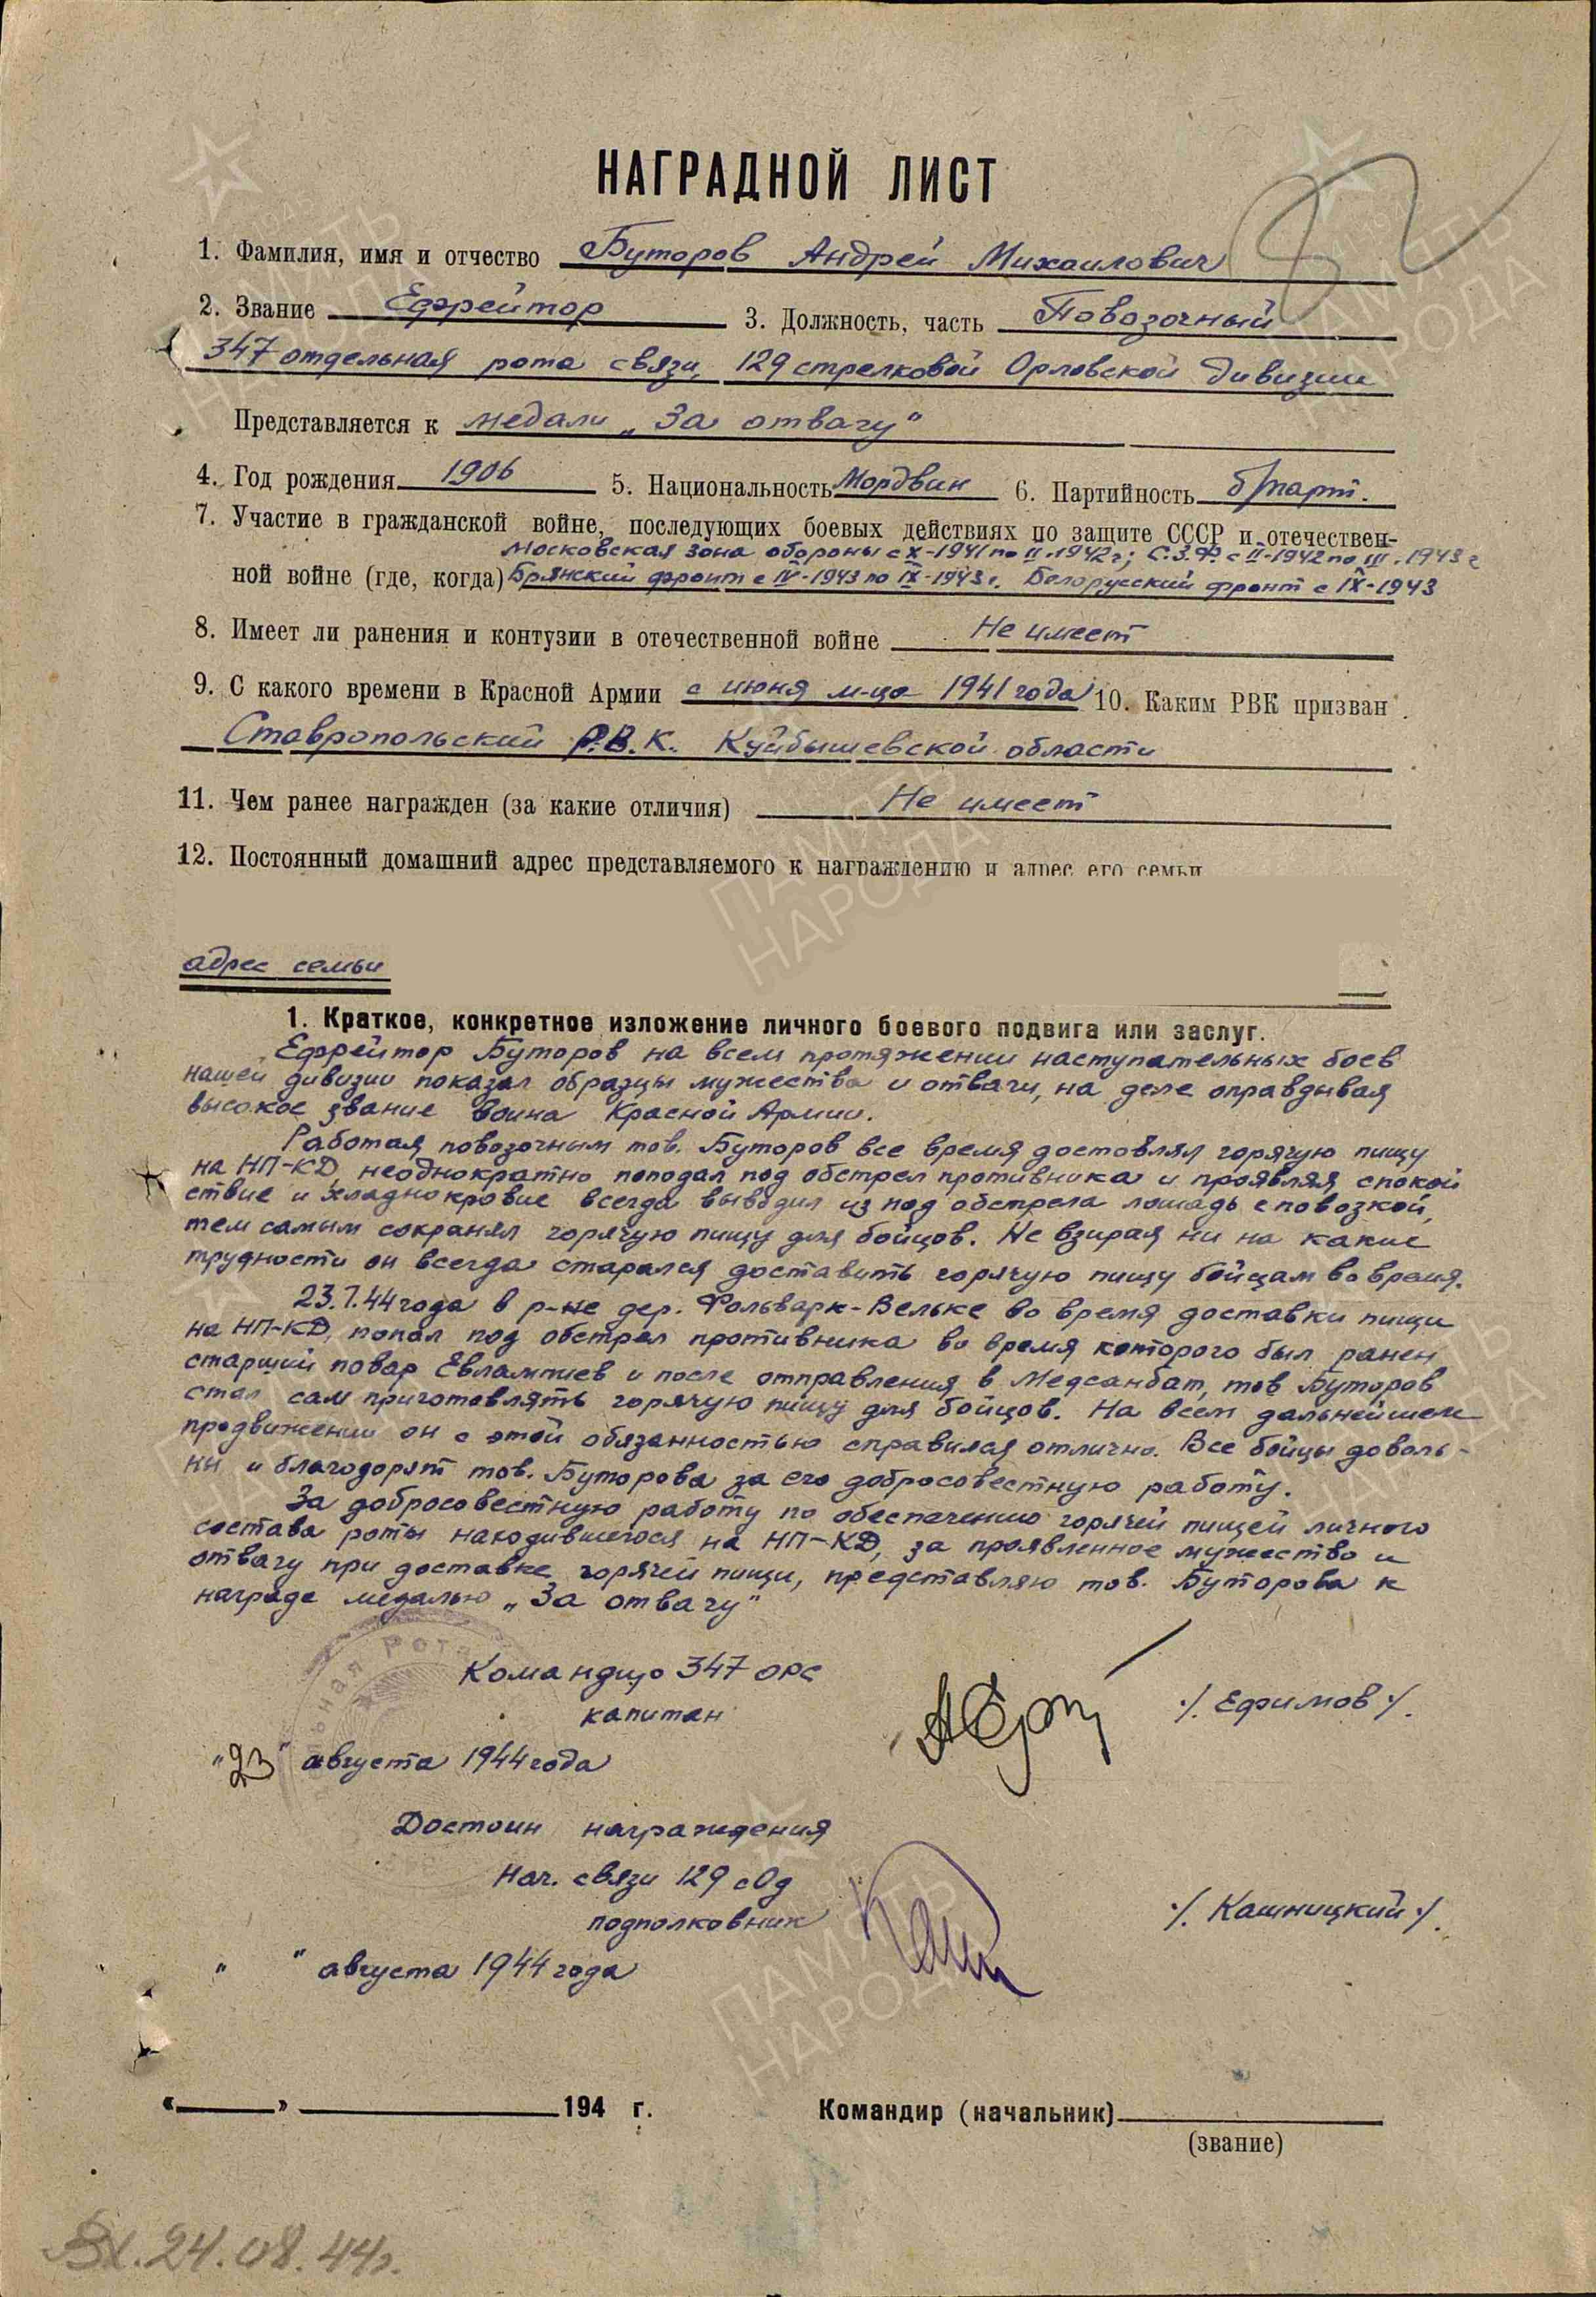 НАГРАДНОЙ ЛИСТ
1. Фамилия, имя и отчество Буторов Андрей Михаилович
2. Звание Ефрейтор 3. Должность, часть Повозочный
347 отдельная рота связи, 129 стрелковой Орловской дивизии
Представляется к медали „За отвагу“
4. Год рождения 1906 5. Национальность Мордвин 6. Партийность б/парт.
7. Участие в гражданской войне, последующих боевых действиях по защите СССР и отечествен-
Московская зона обороны с X-1941 по II.1942 г; С.З.Ф. с II-1942 по III.1943 г
ной войне (где, когда) Брянский фронт с IV-1943 по IX-1943 г. Белорусский фронт с IX-1943
8. Имеет ли ранения и контузии в отечественной войне Не имеет
9. С какого времени в Красной Армии с июня м-ца 1941 года 10. Каким РВК призван
Ставропольский Р.В.К. Куйбышевской области
11. Чем ранее награжден (за какие отличия) Не имеет
12. Постоянный домашний адрес представляемого к награждению и адрес его семьи
адрес семьи
1. Краткое, конкретное изложение личного боевого подвига или заслуг.
Ефрейтор Буторов на всем протяжении наступательных боев
нашей дивизии показал образцы мужества и отваги, на деле оправдывая
высокое звание воина Красной Армии.
Работая повозочным тов. Буторов все время доставлял горячую пищу
на НП-КД, неоднократно попадал под обстрел противника и проявляя спокой
ствие и хладнокровие всегда выводил из под обстрела лошадь с повозкой,
тем самым сохранял горячую пищу для бойцов. Не взирая ни на какие
трудности он всегда старался доставить горячую пищу бойцам во время.
23.7.44 года в р-не дер. Фольварк-Вельке во время доставки пищи
на НП-КД, попал под обстрел противника во время которого был ранен
старший повар Евлампиев и после отправления в Медсанбат, тов Буторов
стал сам приготовлять горячую пищу для бойцов. На всем дальнейшем
продвижении он с этой обязанностью справился отлично. Все бойцы доволь-
ны и благодорят тов. Буторова за его добросовестную работу.
За добросовестную работу по обеспечению горячей пищей личного
состава роты находившегося на НП-КД, за проявленное мужество и
отвагу при доставке горячей пищи, представляю тов. Буторова к
награде медалью „За отвагу“
Командир 347 орс
капитан ./. Ефимов ./.
„23“ августа 1944 года
Достоин награждения
Нач. связи 129 сОд
подполковник ./. Кашницкий ./.
„ “ августа 1944 года
«____» ____________ 194 г. Командир (начальник)
(звание)
Вх. 24.08.44г.
ПАМЯТЬ
НАРОДА